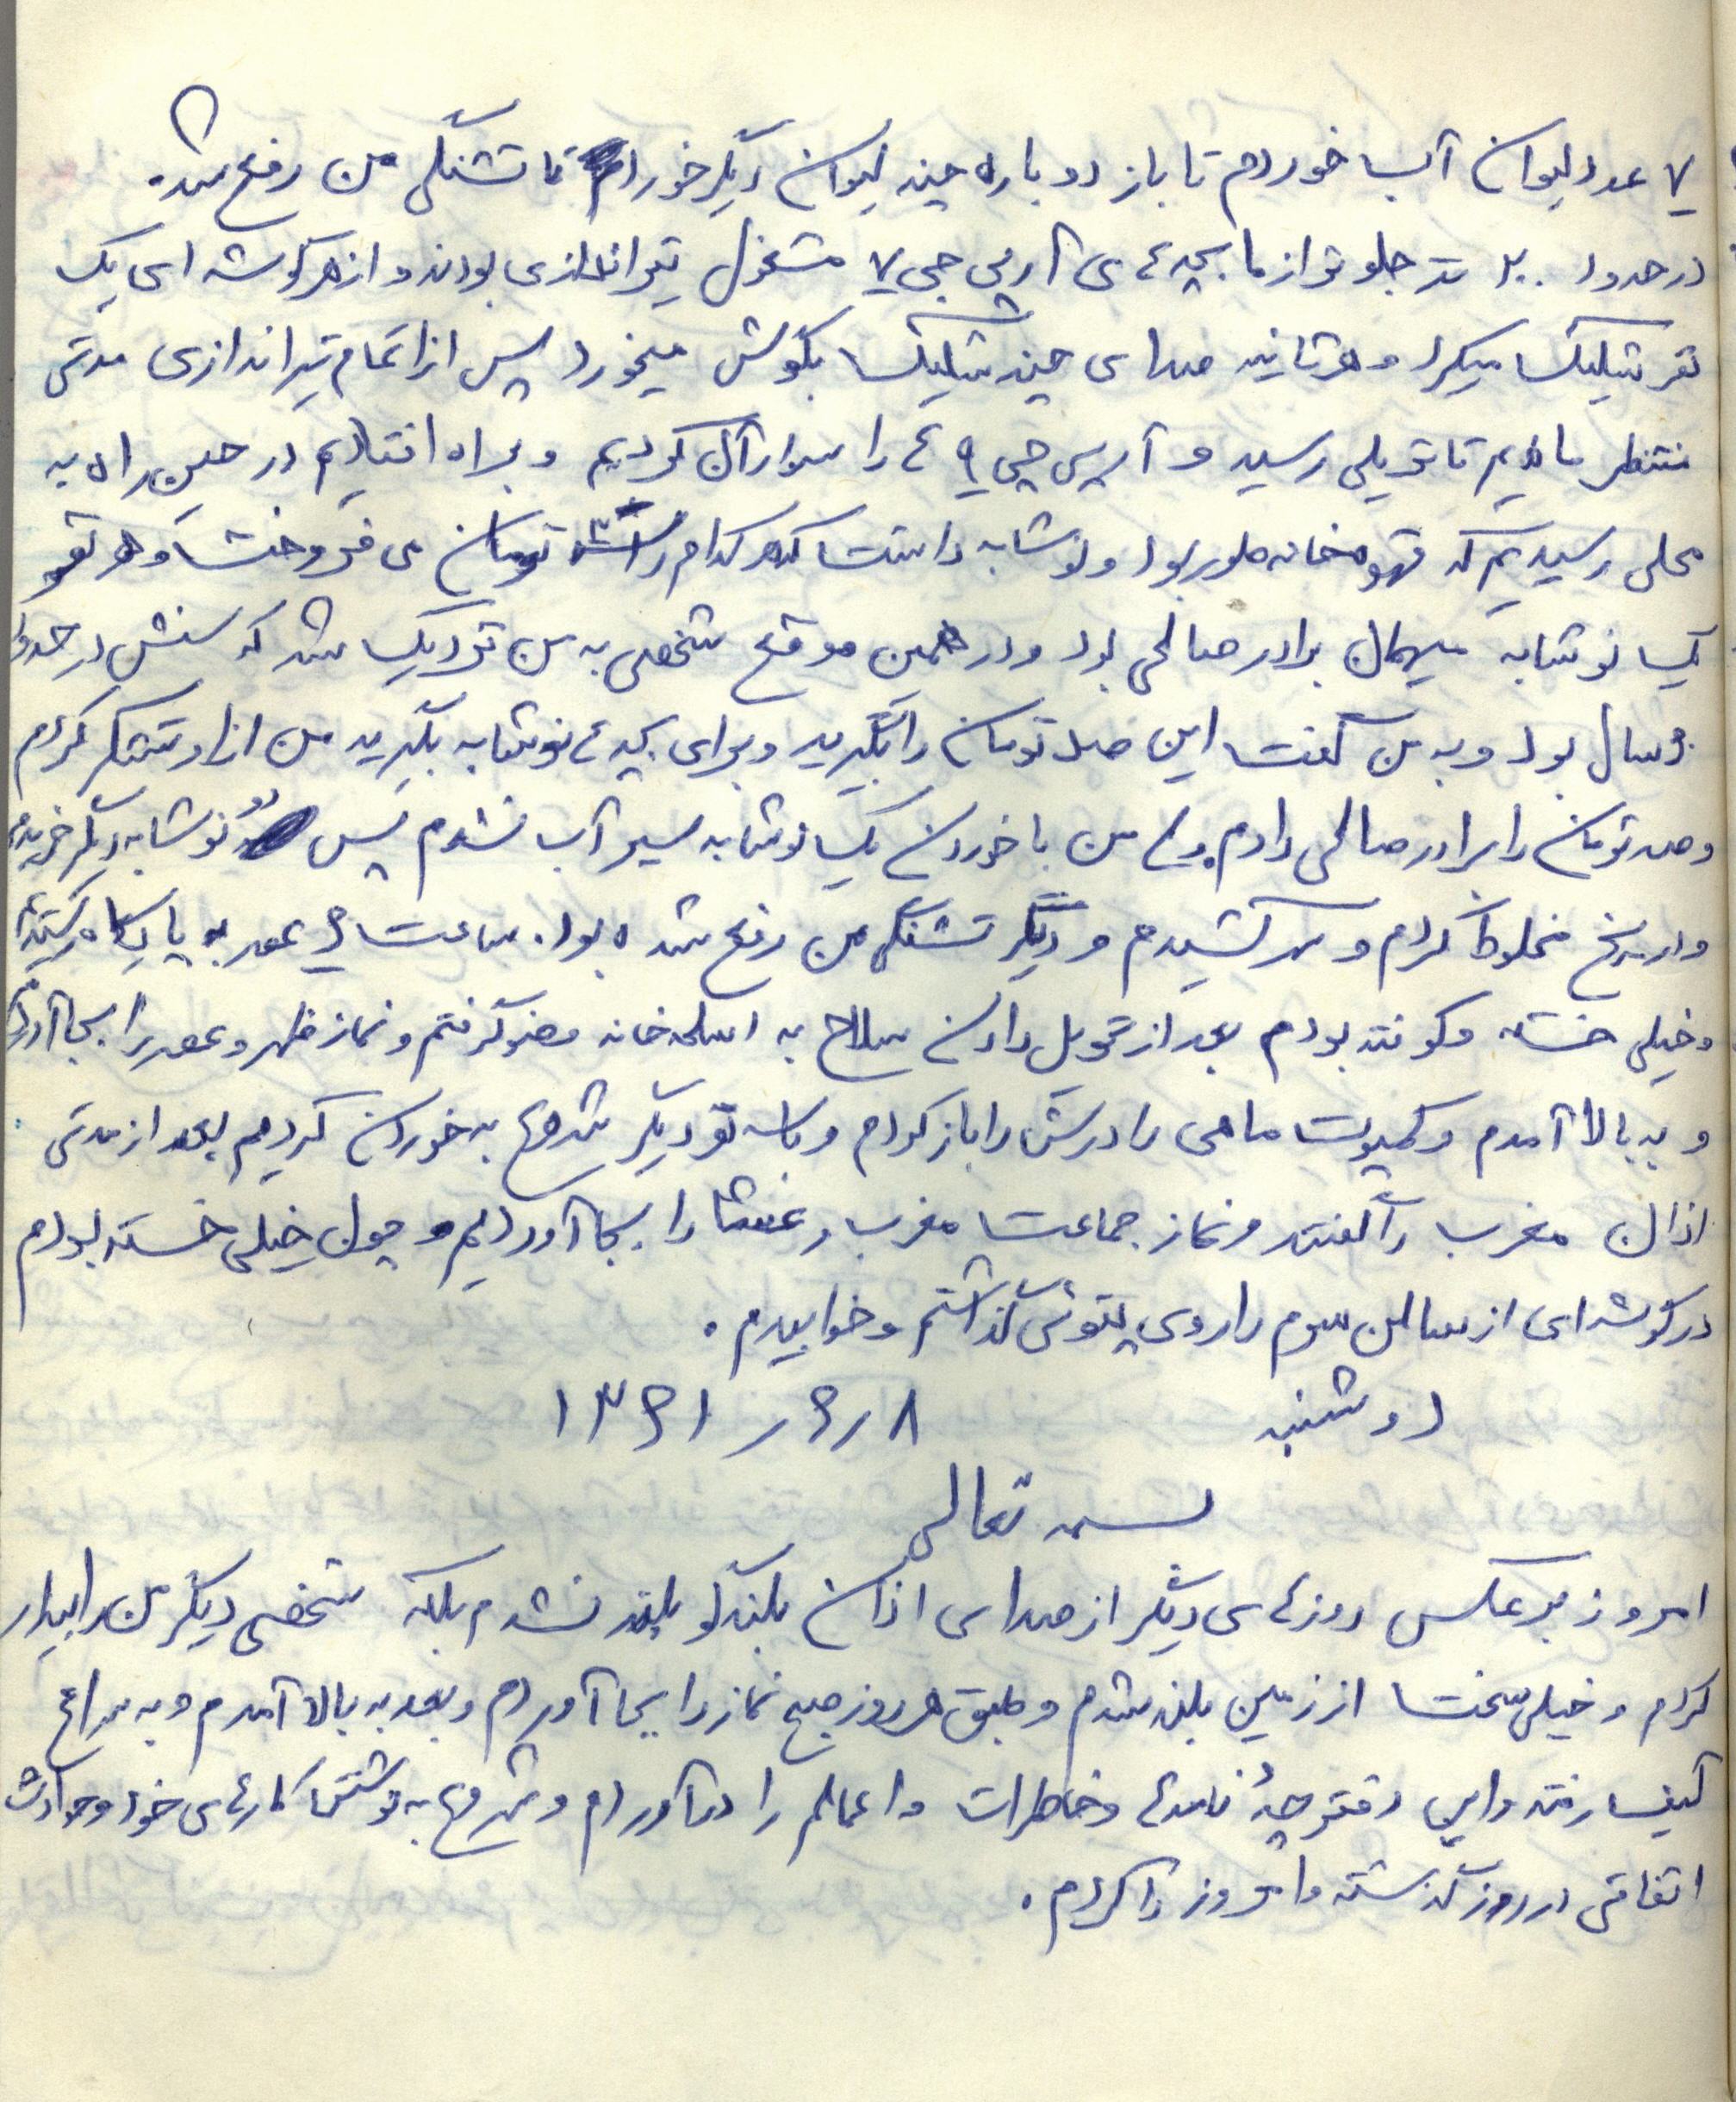 ۷ عدد لیوان آب خوردم تا باز دوباره چند لیوان دیگر خوردم تا تشنگی من رفع شد.
در حدود ۲۰۰ متر جلوتر از ما بچه‌های آرپی جی ۷ مشغول تیراندازی بودند و از هر گوشه‌ای یک
نفر شلیک میکرد و هر ثانیه صدای چند شلیک بگوش میخورد پس از اتمام تیراندازی مدتی
منتظر ماندیم تا تویلی رسید و آر پی جی ها را سوار آن کردیم و براه افتادیم در حین راه به
محلی رسیدیم که قهوه‌خانه طور بود و نوشابه داشت که هر کدام را تومان می فروخت و هر نفر
یک نوشابه میهمان برادر صالحی بود و در همین موقع شخصی به من نزدیک شد که سنش در حدود
سال بود و به من گفت این صد تومان را بگیرید و برای بچه‌ها نوشابه بگیرید من از او تشکر کردم
و صد تومان را برادر صالحی دادم ولی من با خوردن یک نوشابه سیر آب نشدم پس دو نوشابه دیگر خریدم
و در یخ مخلوط کردم و سر کشیدم و دیگر تشنگی من رفع شده بود. ساعت ۶ عصر به پایگاه رسیدیم
و خیلی خسته و کوفته بودم بعد از تحویل دادن سلاح به اسلحه‌خانه وضو گرفتم و نماز ظهر و عصر را بجا آوردم
و به بالا آمدم و کمپوت ماهی را درش را باز کردم و با سه نفر دیگر شروع به خوردن کردیم بعد از مدتی
اذان مغرب را گفتند و نماز جماعت مغرب و عشا را بجا آوردیم و چون خیلی خسته بودم
در گوشه‌ای از سالن سرم را روی پتوئی گذاشتم و خوابیدم.
دوشنبه ۱۳۶۱/۶/۸
بسمه تعالی
امروز برعکس روزهای دیگر از صدای اذان بلندگو بلند نشدم بلکه شخصی دیگر من را بیدار
کرد و خیلی سخت از زمین بلند شدم و طبق هر روز صبح نماز را بجا آوردم و بعد به بالا آمدم و به سراغ
کیف رفته و این دفترچهٔ نامه‌ها و خاطرات و اعمالم را در آوردم و شروع به نوشتن کارهای خود و حوادث
اتفاقی در روز گذشته و امروز را کردم.